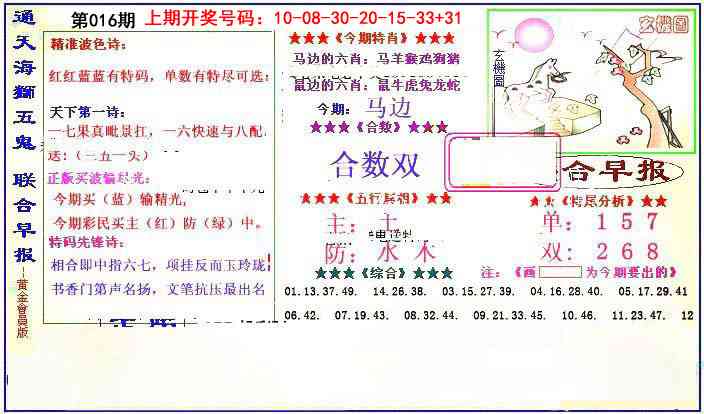 通天海狮五鬼 联合早报
黄金会员版
第016期 上期开奖号码：10-08-30-20-15-33+31
精准波色诗：
红红蓝蓝有特码，单数有特尽可选；
天下第一诗：
一七果真毗景扛，一六快速与八配．
送：（三五一头）
正版买波输尽光：
今期买（蓝）输精光，
今期彩民买主（红）防（绿）中。
特码先锋诗：
相合即中指六七，项挂反而玉玲珑
书香门第声名扬，文笔抗压最出名
★★★《今期特肖》★★★
马边的六肖：马羊猴鸡狗猪
鼠边的六肖：鼠牛虎兔龙蛇
今期：马边
★★★《合数》★★★
合数双
★★★《五行》★★★
主：土
防：水 木
★★★《综合》★★★
玄機圖
玄機圖
合早报
★★《特尾分析》★★
单：1 5 7
双：2 6 8
注：《画 为今期要出的》
01.13.37.49. 14.26.38. 03.15.27.39. 04.16.28.40. 05.17.29.41
06.42. 07.19.43. 08.32.44. 09.21.33.45. 10.46. 11.23.47. 12